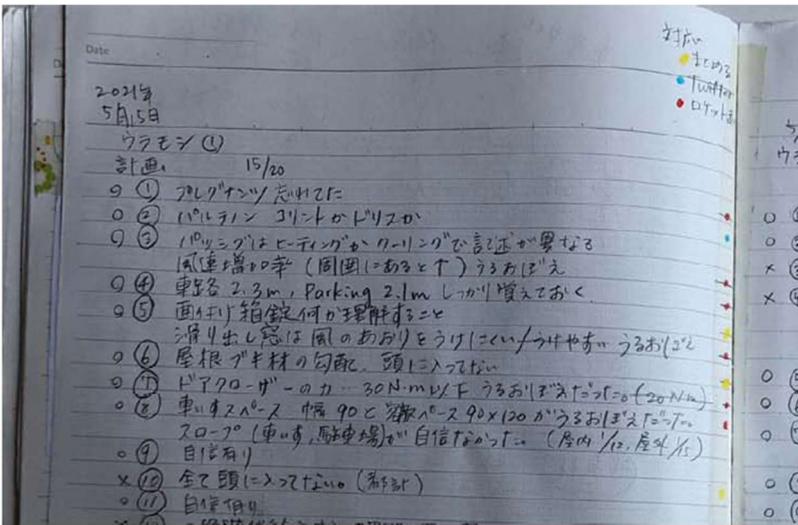 Date
対応
まとめる
Twitter
ロケット
2021年
5月15日
ウラモシ①
計画 15/20
○ ① プレグナンツ 忘れてた
○ ② パルテノン コリントかドリスか
○ ③ パッシブはヒーティングかクーリングで記述が異なる
風速増加率 (周囲にあると↑) うろおぼえ
○ ④ 車路 2.3m, Parking 2.1m しっかり覚えておく
○ ⑤ 面付け箱錠何か理解すること
滑り出し窓は風のあおりをうけにくい/うけやすい うろおぼえ
○ ⑥ 屋根ブキ材の勾配 頭に入ってない
○ ⑦ ドアクローザーの力 … 30N·m以下 うろおぼえだった。(20N·m)
○ ⑧ 車いすスペース 幅90と スペース90×120がうろおぼえだった。
スロープ(車いす,駐車場)が自信なかった。(屋内1/12, 屋外1/15)
○ ⑨ 自信有り
× ⑩ 全て頭に入ってない。(都計)
○ ⑪ 自信有り